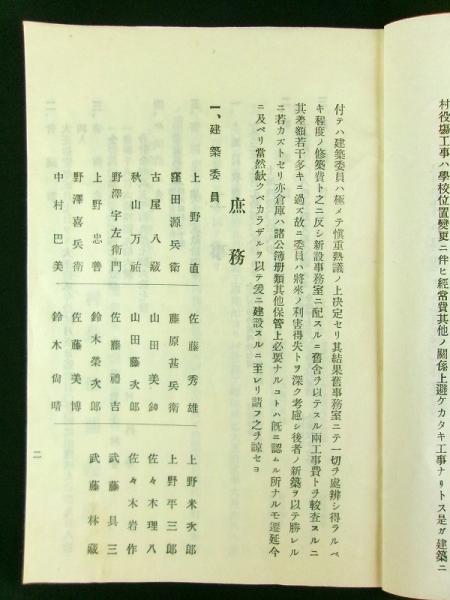 村役場工事ハ學校位置變更ニ件ヒ經常費其他ノ關係上避ケカタキ工事ナリトス是ガ建築ニ
付テハ建築委員ハ極メテ愼重熟議ノ上決定セリ其結果舊事務室ニテ一切ヲ處辨シ得ラルベ
キ程度ノ修築費ト之ニ反シ新設事務室ニ配スルニ舊舍ヲ以テスル兩工事費トヲ較査スルニ
其差額若干多キニ過ズ故ニ委員ハ將來ノ利害得失トヲ深ク考慮シ後者ノ新築ヲ以テ勝レル
ニ若カズトセリ亦倉庫ハ諸公簿册類其他保管上必要ナルコトハ旣ニ認ムル所ナルモ遷延今
ニ及ベリ當然歛クベカラザルヲ以テ爰ニ建設スルニ至レリ請フ之ヲ諒セヨ
庶務
一、建築委員
上野直 佐藤秀雄 上野米次郎
窪田源兵衛 藤原甚兵衛 上野平三郎
古屋八藏 山田美 佐々木理八
秋山万祐 山田藤次郎 佐々木岩作
野澤宇左衛門 佐藤禮吉 武藤具三
上野忠善 鈴木榮次郎 武藤林藏
野澤喜兵衛 佐藤美博
中村巴美 鈴木尙晴
二